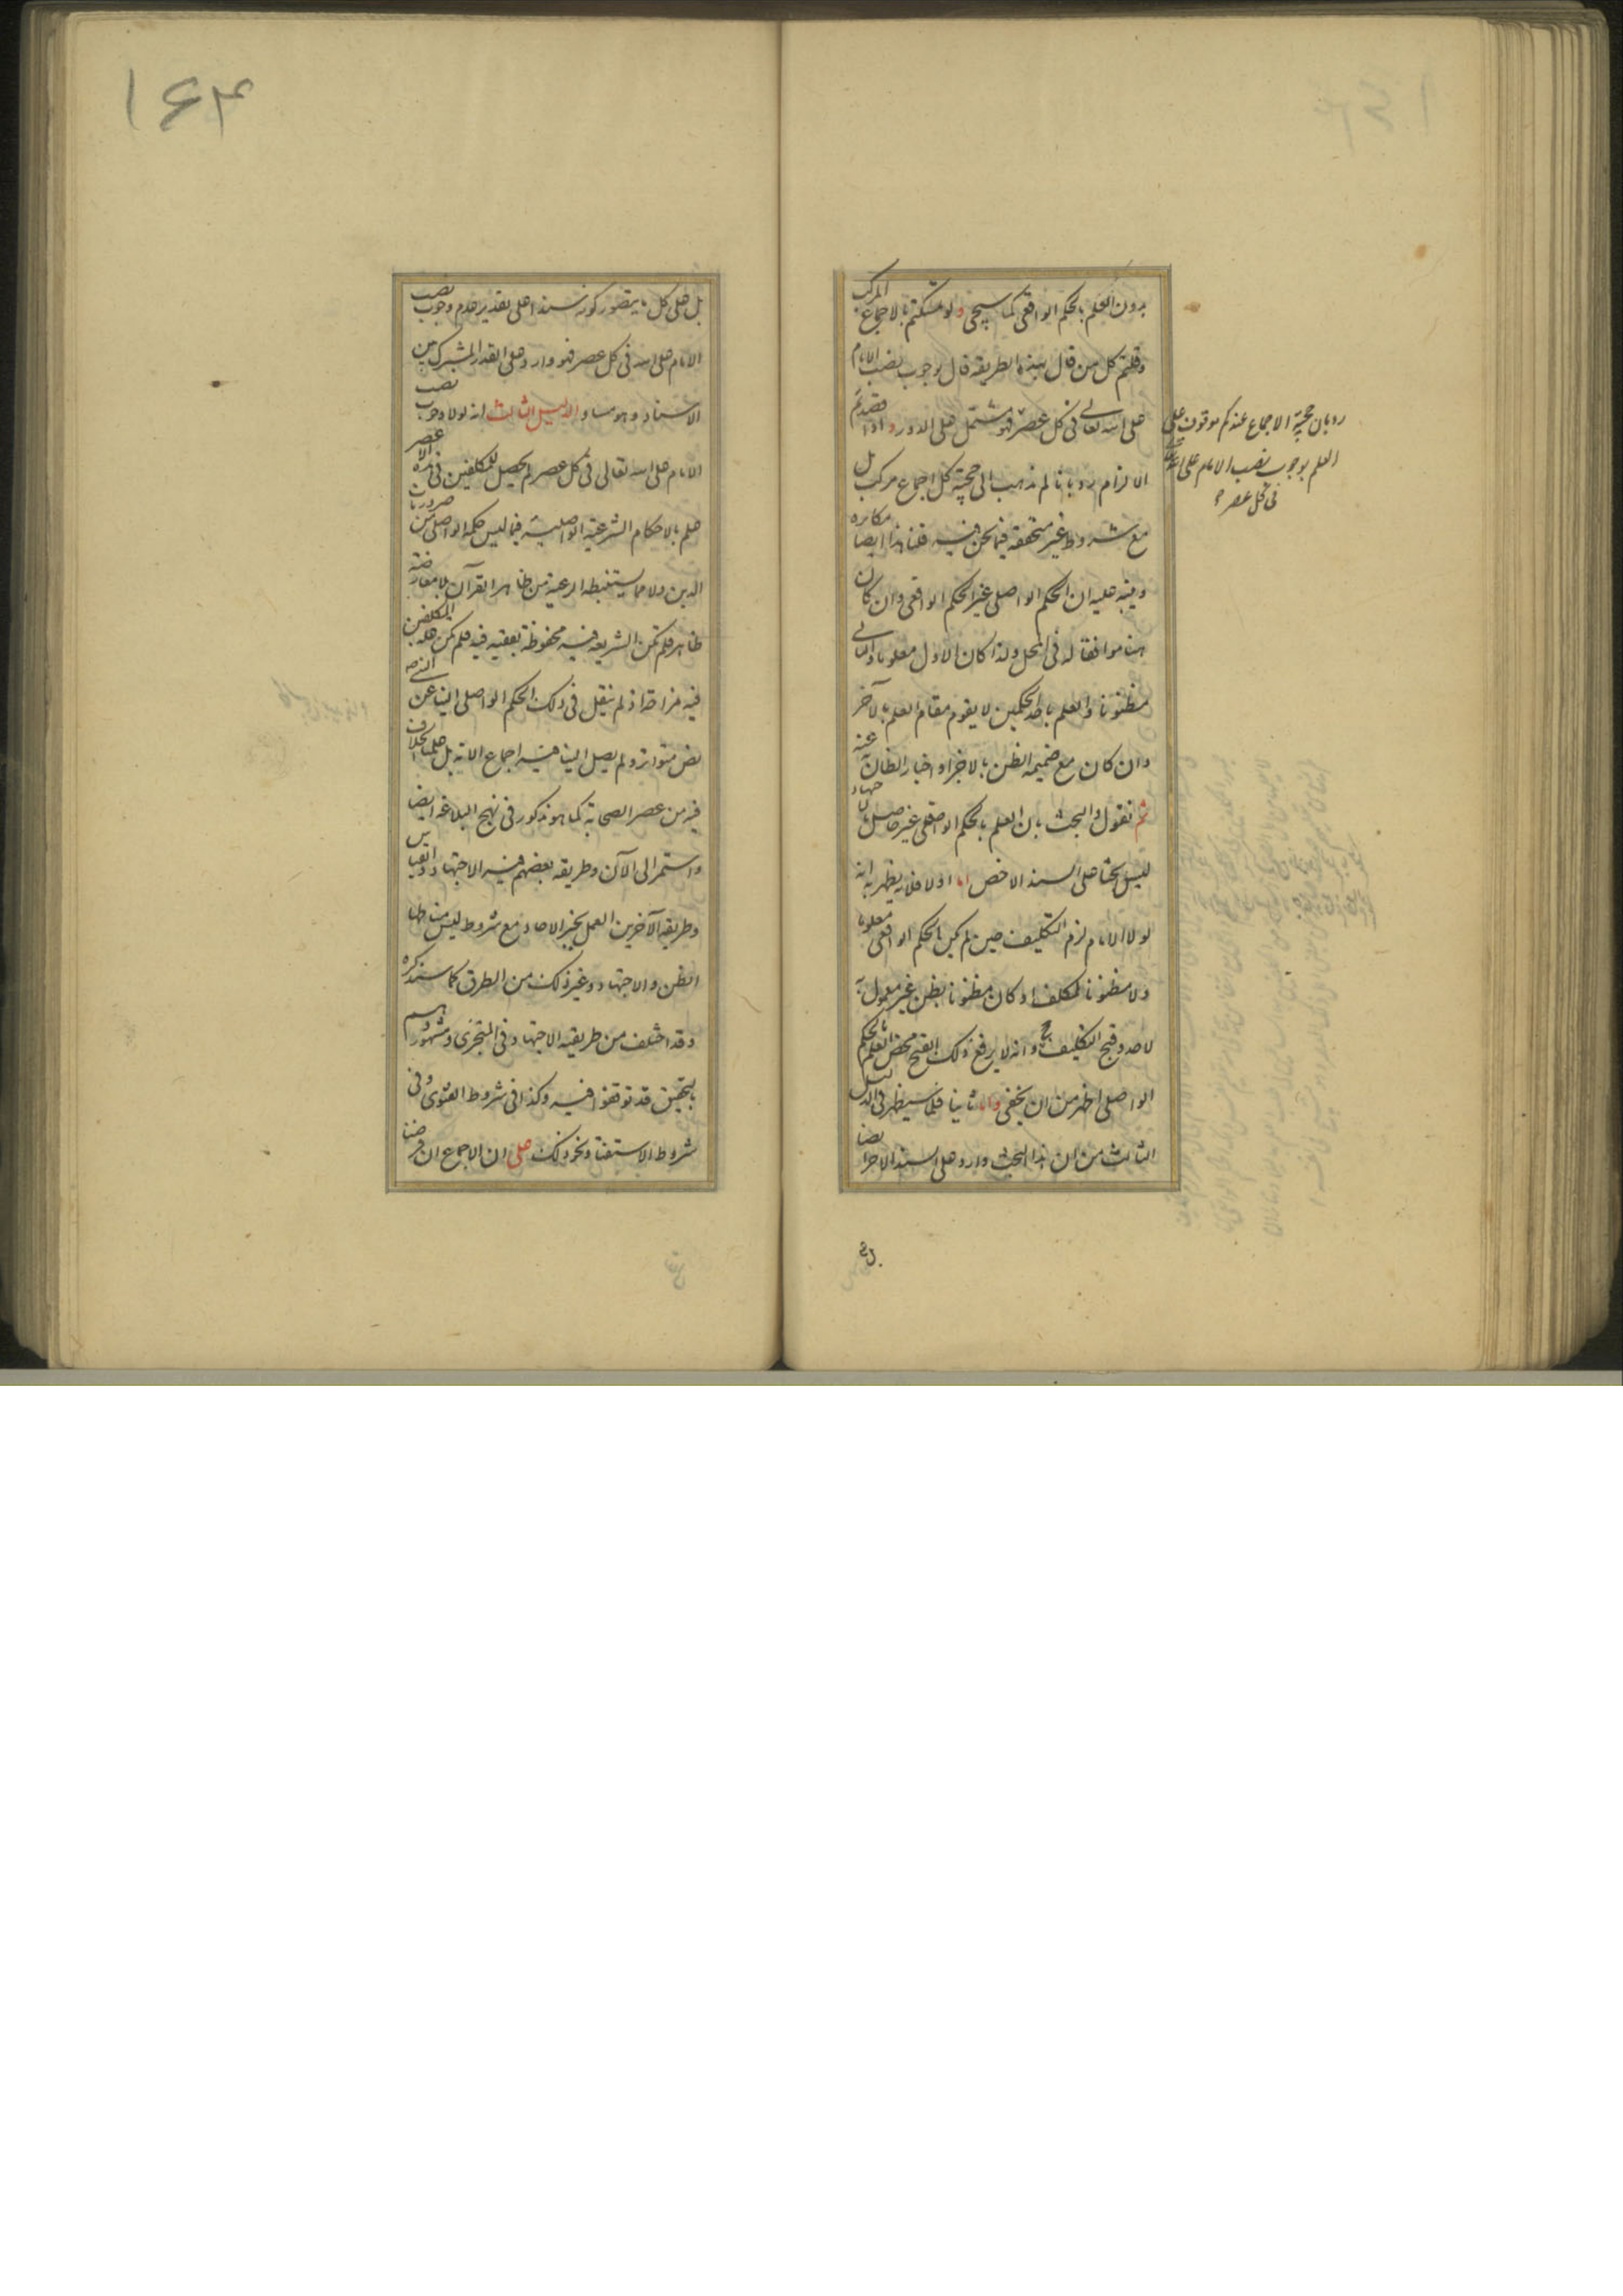 بدون العلم بالحكم الواقعى كما سيجى ولو تمسكتم بالاجماع المركب
وقلتم كل من قال بهذه الطريقه قال بوجوب نصب الامام
على الله تعالى فى كل عصر فهو مشتمل على الدور واذا قصدتم
الالزام رد بانا لم نذهب الى حجية كل اجماع مركب بل
مع شروط غير متحققه فيما نحن فيه قلنا هذا ايضا مكابره
وينبه عليه ان الحكم الواصلى غير الحكم الواقعى وان كان
هنا موافقا له فى المحل ولذا كان الاول معلوما والثانى
مظنونا والعلم باحد الحكمين لا يقوم مقام العلم بالآخر
وان كان مع ضميمه الظن بالآخر او اخبار الظان عنه
ثم نقول والبحث بان العلم بالحكم الواقعى غير حاصل
ليس بحثا على السند الاخص اما اولا فلانه يظهر به انه
لولا الامام لزم التكليف حين لم يكن الحكم الواقعى معلوما
ولا مظنونا للمكلف او كان مظنونا بظن غير معمول به
لاحد وقبح التكليف ح وانه لا يرفع ذلك القبح محض العلم بالحكم
الواصلى اظهر من ان يخفى واما ثانيا فلما سيظهر فى الدليل
الثالث من ان هذا البحث وارد على السند الآخر ايضا
رد بان حجية الاجماع عندكم موقوف على
العلم بوجوب نصب الامام على الله تعالى
فى كل عصر
بل
بل على كل ما يتصور كونه سندا على تقدير عدم وجوب نصب
الامام على الله فى كل عصر فهو وارد على القدر المشترك من
الاسناد وهو مساو الدليل الثالث انه لولا وجوب نصب
الامام على الله تعالى فى كل عصر لم يحصل للمكلفين فى هذه الاعصر
علم بالاحكام الشرعية الواصلية فيما ليس حكمه الواصلى من ضروريات
الدين ولا مما يستنبطه الرعية من ظاهر القرآن بلا معارضة
ظاهر فلم تكن الشريعه فيه محفوظة بفقيه فيه فلم يكن المكلفين علة
فيه مزاحة اذ لم ينقل فى ذلك الحكم الواصلى الينا عن النبى
نص متواتر ولم يصل الينا فيه اجماع الامة بل علم الخلاف
فيه من عصر الصحابة كما هو مذكور فى نهج البلاغه ايضا
واستمر الى الآن وطريقه بعضهم فيه الاجتهاد والقياس
وطريقه الآخرين العمل بخبر الآحاد مع شروط ليس مناطها
الظن والاجتهاد وغير ذلك من الطرق كما سنذكره
وقد اختلف من طريقيه الاجتهاد فى المتجزى ومشهورو هم
بالتحقيق قد توقفوا فيه وكذا فى شروط الفتوى وفى
شروط الاستفتاء ونحو ذلك على ان الاجماع ان فرضنا
۱۶۴